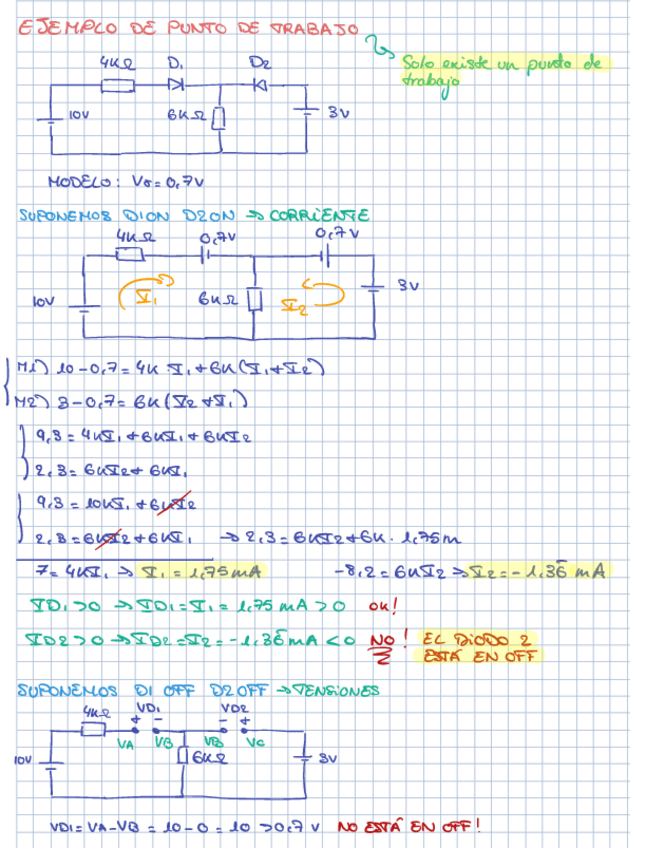 EJEMPLO DE PUNTO DE TRABAJO
Solo existe un punto de
trabajo
4KΩ D1 D2
10V 6KΩ 3V
MODELO: Vσ=0,7V
SUPONEMOS D1ON D2ON → CORRIENTE
4KΩ 0,7V 0,7V
10V I1 6KΩ I2 3V
M1) 10-0,7=4K I1+6K(I1+I2)
M2) 3-0,7=6K(I2+I1)
9,3=4KI1+6KI1+6KI2
2,3=6KI2+6KI1
9,3=10KI1+6KI2
2,3=6KI2+6KI1 → 2,3=6KI2+6K·1,75m
7=4KI1 → I1=1,75mA -8,2=6KI2 → I2=-1,36 mA
ID1>0 → ID1=I1=1,75 mA>0 OK!
ID2>0 → ID2=I2=-1,36mA<0 NO! EL DIODO 2
ESTÁ EN OFF
SUPONEMOS D1 OFF D2OFF → TENSIONES
4KΩ VD1 VD2
+ - - +
VA VB VB VC
10V 6KΩ 3V
VD1=VA-VB=10-0=10>0,7V NO ESTÁ EN OFF!